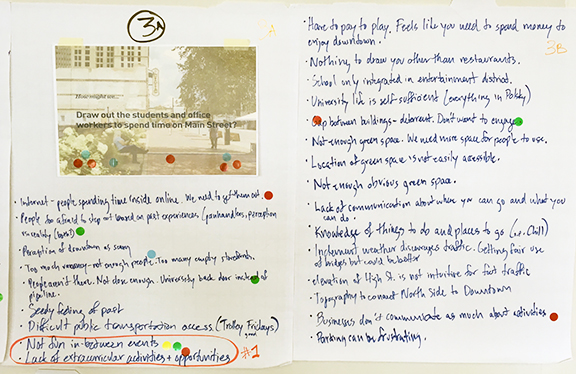 3A
A
How might we...
Draw out the students and office
workers to spend time on Main Street?
• Internet - people spending time inside online. We need to get them out.
• People too afraid to step out based on past experiences (panhandlers, perception
vs reality
• Perception of downtown as scary
• Too much vacancy - not enough people. Too many empty storefronts.
• People aren't there. Not close enough. University back door instead of
pipeline.
• Seedy feeling of past
• Difficult public transportation access (Trolley Fridays)
good
• Not fun in-between events
• Lack of extracurricular activities + opportunities
#1
• Have to pay to play. Feels like you need to spend money to
enjoy downtown.
3B
• Nothing to draw you other than restaurants.
• School only integrated in entertainment district.
• University life is self-sufficient (everything in
• Gap between buildings - deterrent. Don't want to engage
• Not enough green space. We need more space for people to use.
• Location of green space is not easily accessible.
• Not enough obvious green space.
• Lack of communication about where you can go and what you
can do.
• Knowledge of things to do and places to go (i.e.
• Inclement weather discourages traffic. Getting fair use
of bridges but could be better
• elevation of High St. is not intuitive for foot traffic
• Topography to connect North Side to Downtown
• Businesses don't communicate as much about activities
• Parking can be frustrating.